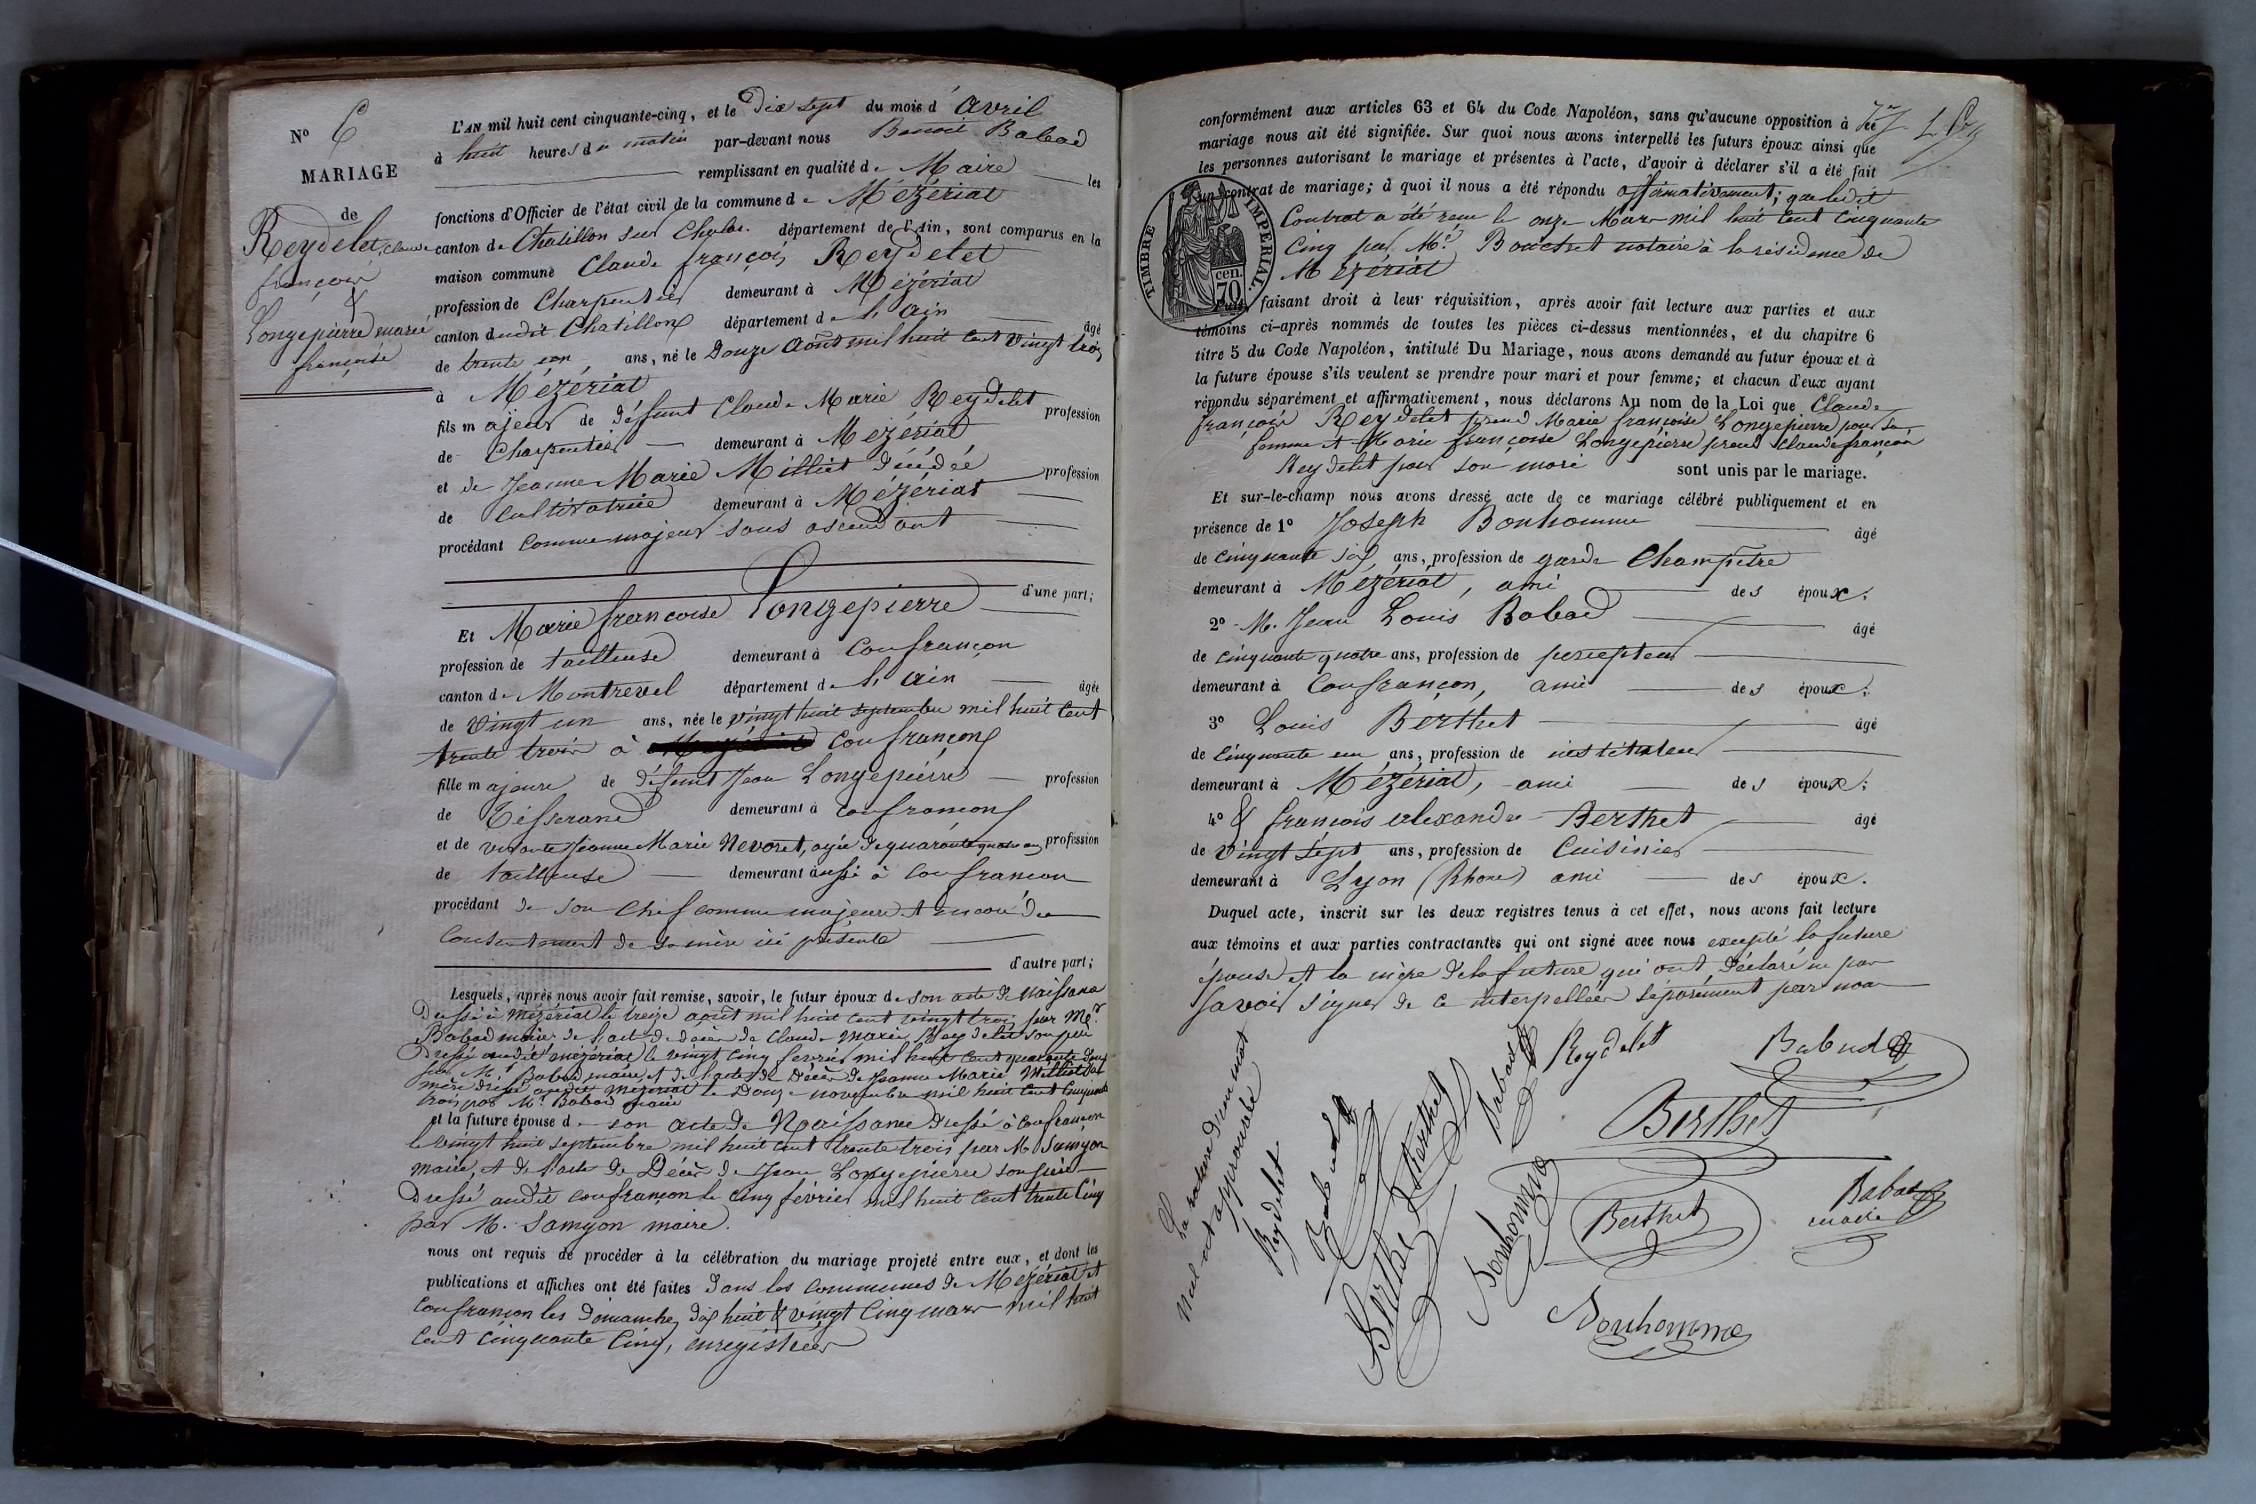 N° 6
MARIAGE
de
Reydelet, Claude
françois
&
Longepierre marie
françoise
L'AN mil huit cent cinquante-cinq, et le Dix sept du mois d'avril
à huit heures du matin par-devant nous Benoit Babad
remplissant en qualité de Maire les
fonctions d'Officier de l'état civil de la commune de Mézériat
canton de Chatillon sur Chalar. département de l'Ain, sont comparus en la
maison commune Claude françois Reydelet
profession de Charpentier demeurant à Mézériat
canton dudit Chatillon département de l'ain âgé
de trente un ans, né le Douze août mil huit cent vingt trois
à Mézériat
fils majeur de défunt Claude Marie Reydelet profession
de Charpentier demeurant à Mézériat
et de Jeanne Marie Milliet décédée profession
de Cultivatrice demeurant à Mézériat
procédant comme majeur sans ascendant
d'une part;
Et Marie françoise Longepierre
profession de tailleuse demeurant à Confrançon
canton de Montrevel département de l'ain âgée
de vingt un ans, née le vingt huit septembre mil huit cent
trente trois à Confrançon
fille majeure de défunt Jean Longepierre profession
de Tisserand demeurant à Confrançon
et de vivante Jeanne Marie Nevoret, agée de quarante quatre ans profession
de tailleuse demeurant aussi à Confrançon
procédant de son chef comme majeure et encore du
consentement de sa mère ici présente
d'autre part;
Lesquels, après nous avoir fait remise, savoir, le futur époux de son acte de Naissance
Dressé à Mézériat le treize août mil huit cent vingt trois par Mr
Babad maire de l'acte de décès de Claude Marie Reydelet son père
Dressé audit Mézériat le vingt cinq février mil huit cent quarante deux
par Mr Babad maire, et de l'acte de Décès de Jeanne Marie Milliet sa
mère dressé audit Mézériat le Douze novembre mil huit cent cinquante
trois par Mr Babad maire
et la future épouse de son acte de Naissance Dressé à Confrançon
le vingt huit septembre mil huit cent trente trois par Mr Samyon
maire, et de l'acte de Décès de Jean Longepierre son père
Dressé audit Confrançon le cinq février mil huit cent trente cinq
par M. Samyon maire.
nous ont requis de procéder à la célébration du mariage projeté entre eux, et dont les
publications et affiches ont été faites dans les communes de Mézériat et
Confrançon les Dimanches dix huit & vingt cinq mars mil huit
cent cinquante cinq, enregistrées
conformément aux articles 63 et 64 du Code Napoléon, sans qu'aucune opposition à ce
mariage nous ait été signifiée. Sur quoi nous avons interpellé les futurs époux ainsi que
les personnes autorisant le mariage et présentes à l'acte, d'avoir à déclarer s'il a été fait
un contrat de mariage; à quoi il nous a été répondu affirmativement; que ledit
Contrat a été reçu le onze Mars mil huit cent cinquante
cinq par Me Bouchet notaire à la résidence de
Mézériat
TIMBRE IMPÉRIAL.
70 cen.
Puis, faisant droit à leur réquisition, après avoir fait lecture aux parties et aux
témoins ci-après nommés de toutes les pièces ci-dessus mentionnées, et du chapitre 6
titre 5 du Code Napoléon, intitulé Du Mariage, nous avons demandé au futur époux et à
la future épouse s'ils veulent se prendre pour mari et pour femme; et chacun d'eux ayant
répondu séparément et affirmativement, nous déclarons Au nom de la Loi que Claude
françois Reydelet prend Marie françoise Longepierre pour sa
femme et Marie françoise Longepierre prend Claude françois
Reydelet pour son mari sont unis par le mariage.
Et sur-le-champ nous avons dressé acte de ce mariage célébré publiquement et en
présence de 1° Joseph Bonhomme âgé
de cinquante six ans, profession de garde Champêtre
demeurant à Mézériat, ami des époux;
2° M. Jean Louis Babad âgé
de cinquante quatre ans, profession de percepteur
demeurant à Confrançon, ami des époux;
3° Louis Berthet âgé
de cinquante un ans, profession de instituteur
demeurant à Mézériat, ami des époux;
4° & françois alexandre Berthet âgé
de vingt sept ans, profession de Cuisinier
demeurant à Lyon (Rhone) ami des époux.
Duquel acte, inscrit sur les deux registres tenus à cet effet, nous avons fait lecture
aux témoins et aux parties contractantes qui ont signé avec nous excepté la future
épouse et la mère de la future qui ont déclaré ne pas
savoir signer de ce interpellées séparément par nous
Reydelet Babad
Berthet
Berthet
Babad
maire
Bonhomme
La rature d'un mot
nul est approuvée
Reydelet
Babad
Berthet
Berthet
Babad
Bonhomme